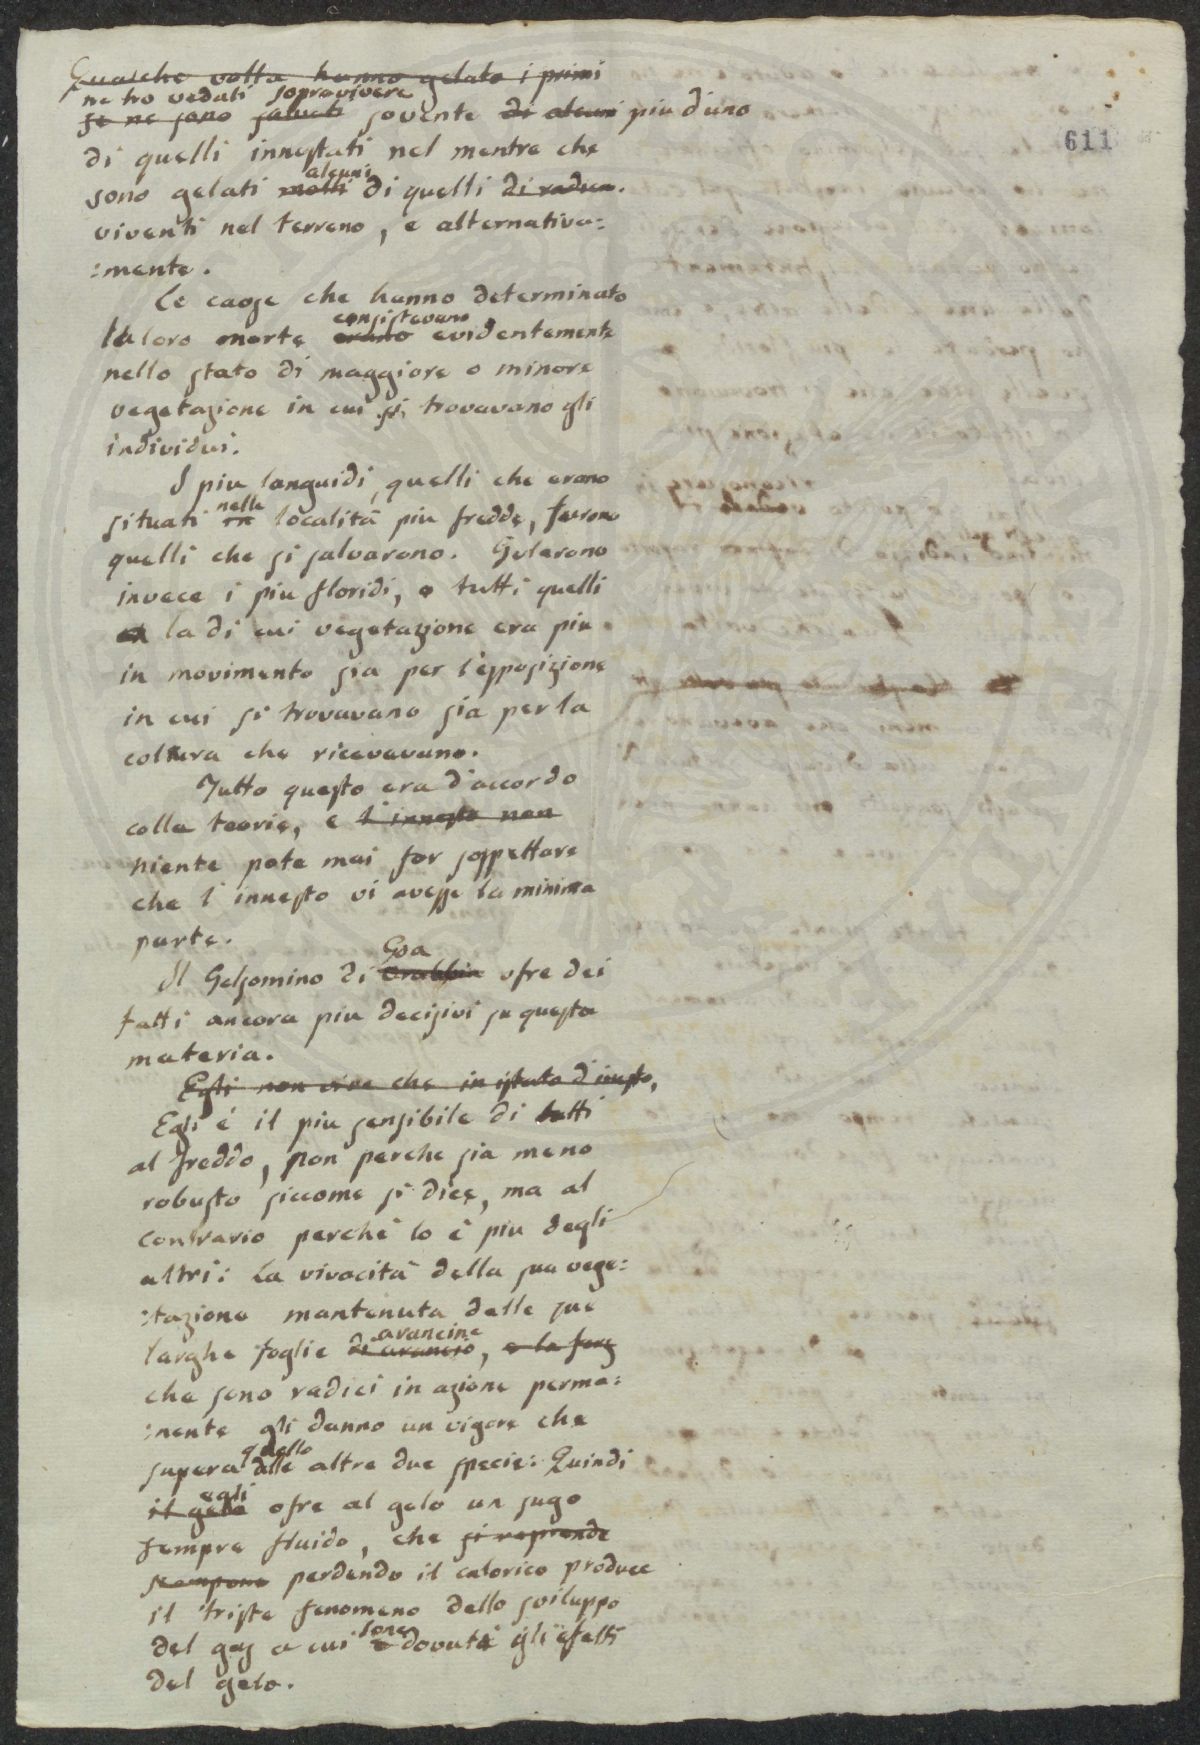 Qualche volta hanno gelato i primi
ne ho veduti sopravivere
se ne sono salvati sovente di alcuni piu d'uno
611
di quelli innestati nel mentre che
alcuni
sono gelati molti di quelli di radica.
viventi nel terreno, e alternativa:
:mente.
Le cause che hanno determinato
consistevano
la loro morte erano evidentemente
nello stato di maggiore o minore
vegetazione in cui si trovavano gli
individui.
I piu languidi, quelli che erano
nelle
situati in località piu fredde, furono
quelli che si salvarono. Gelarono
invece i piu floridi, e tutti quelli
la di cui vegetazione era piu
in movimento sia per l'esposizione
in cui si trovavano sia per la
coltura che ricevevano.
Tutto questo era d'accordo
colla teoria, e l'innesto non
niente pote mai far sospettare
che l'innesto vi avesse la minima
parte.
Goa
Il Gelsomino di Arabbia ofre dei
fatti ancora piu decisivi su questa
materia.
Egli non vive che in istato d'inesto,
Egli é il piu sensibile di tutti
al freddo, non perche sia meno
robusto siccome si dice, ma al
contrario perchè lo è piu degli
altri: la vivacità della sua vege:
:tazione mantenuta dalle sue
arancine
larghe foglie di arancio, e la forz
che sono radici in azione perma:
:nente gli danno un vigore che
quello
supera delle altre due specie: Quindi
egli
il gelo ofre al gelo un sugo
sempre fluido, che si reprende
scompone perdendo il calorico produce
il triste fenomeno dello sviluppo
sono
del gas a cui è dovuti gli efetti
del gelo.